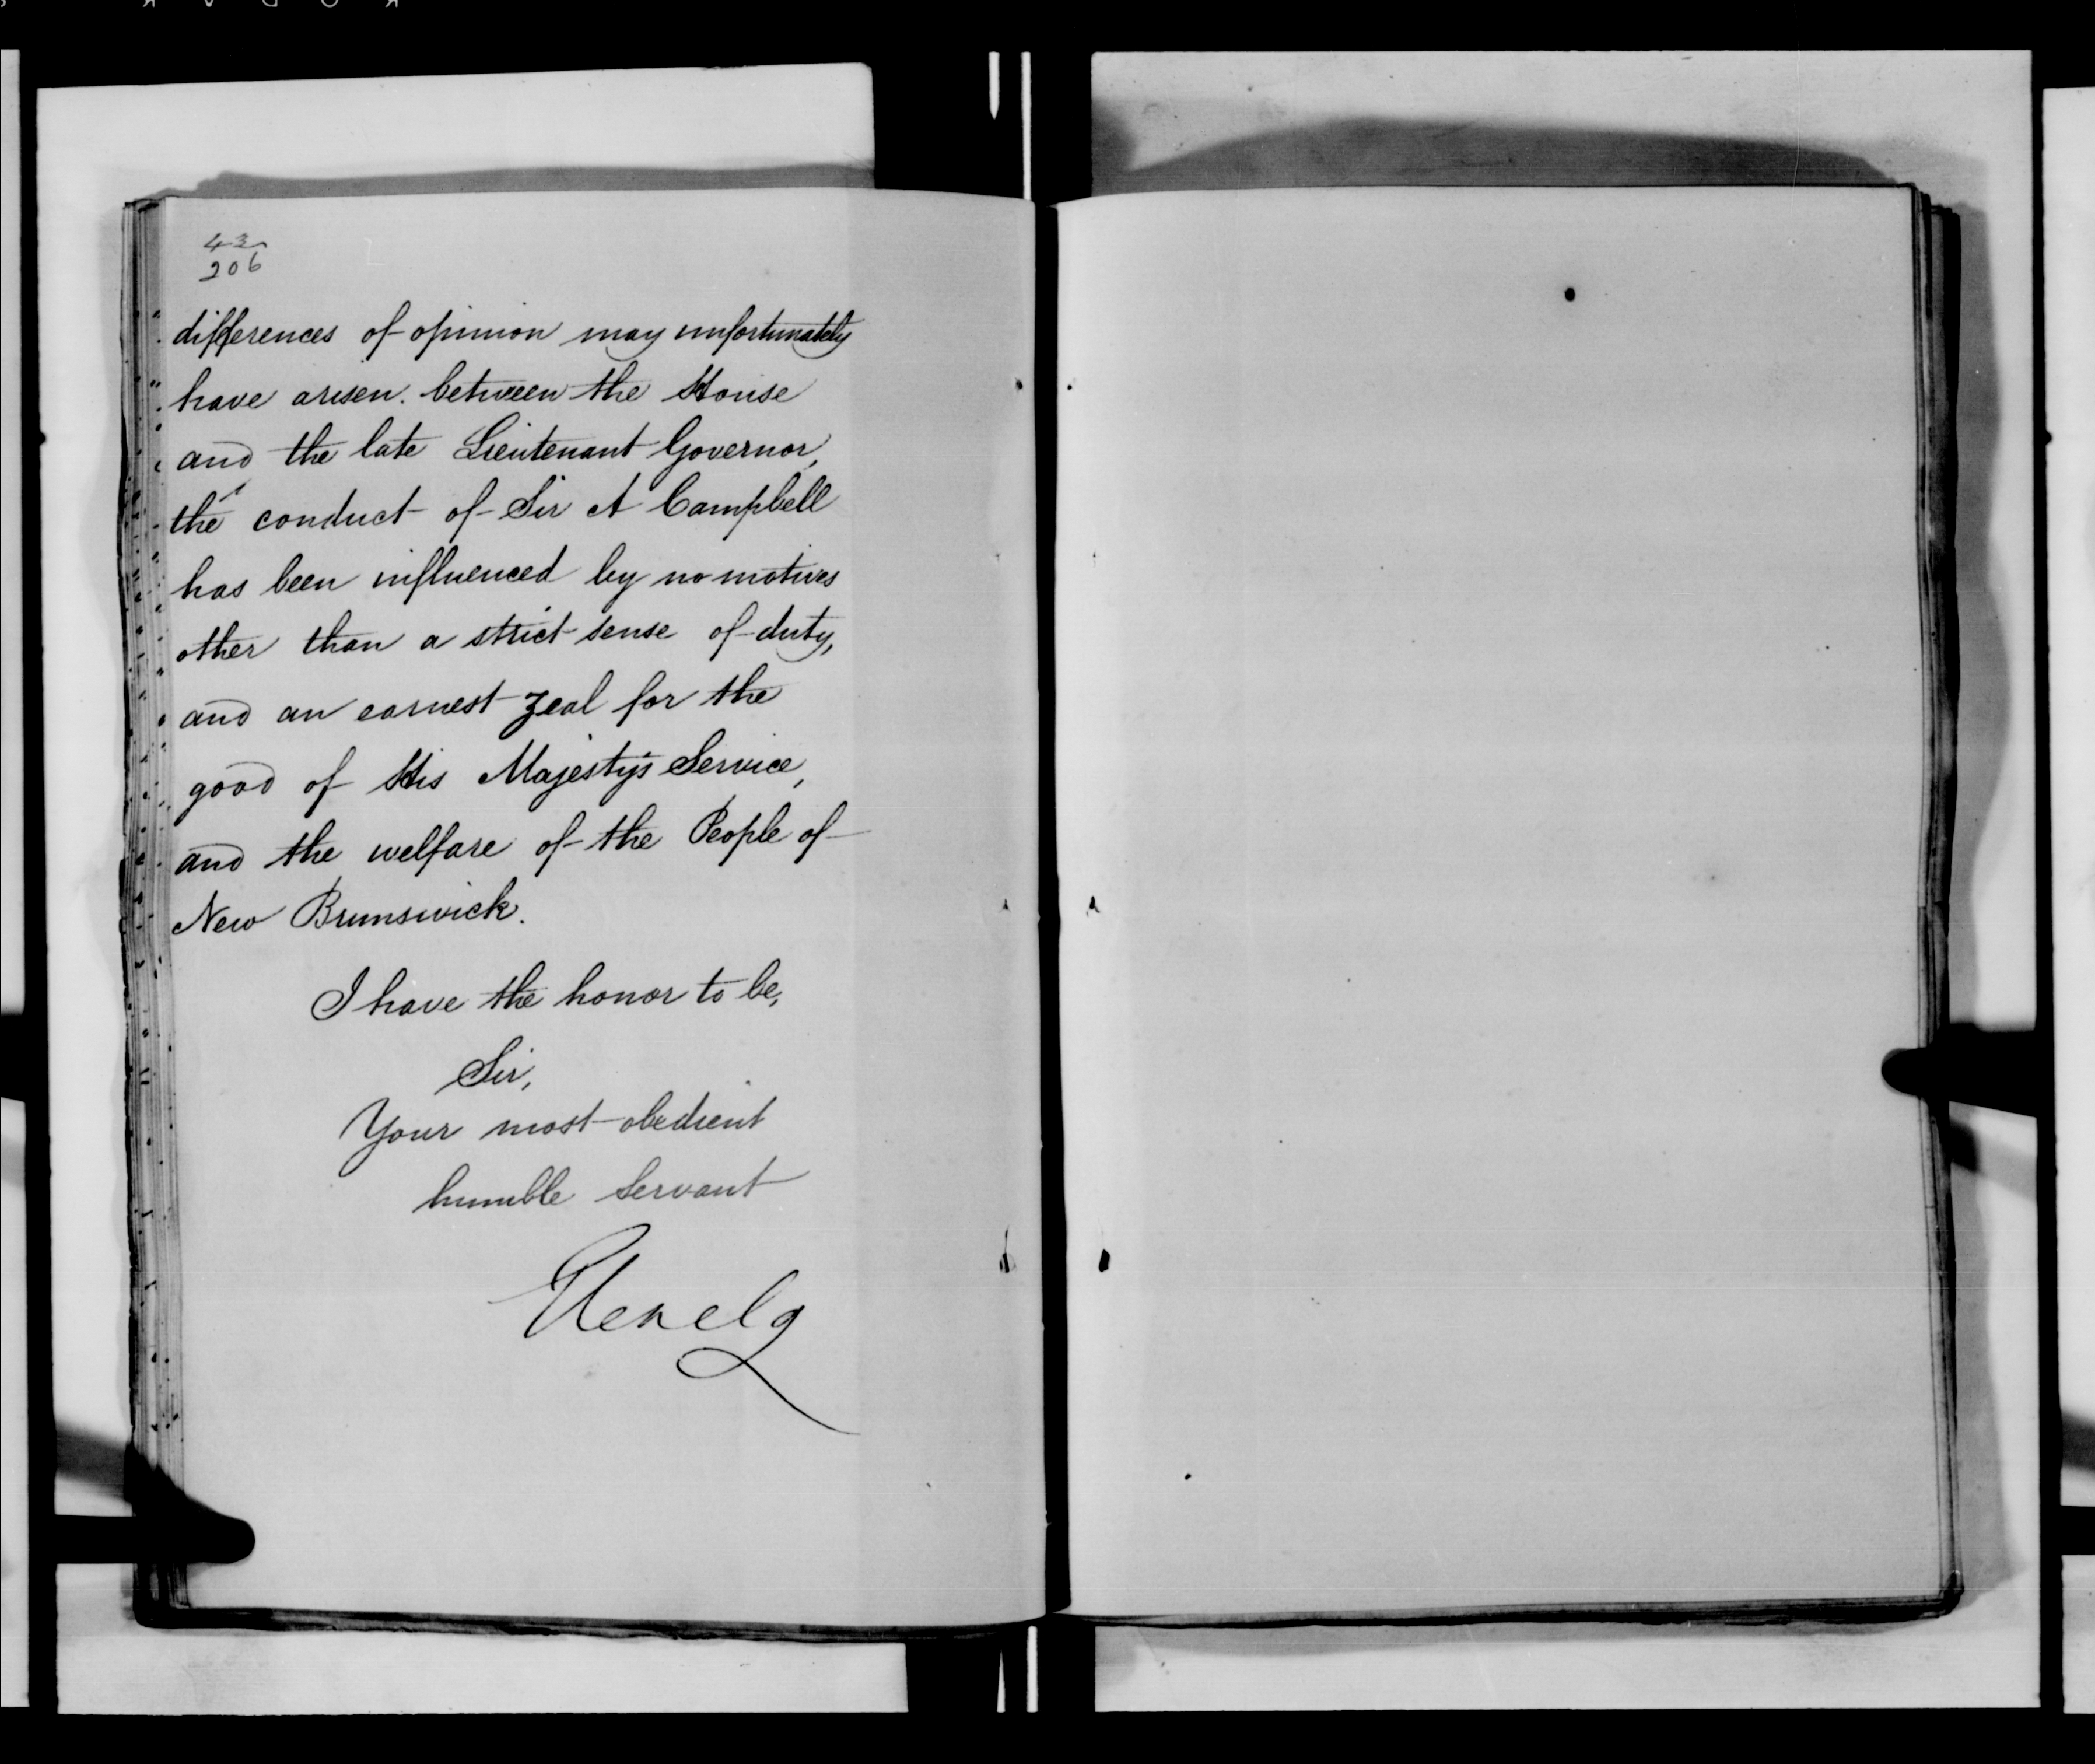 43
206
differences of opinion may unfortunately
have arisen. between the House
and the late Lieutenant Governor,
the conduct of Sir A Campbell
has been influenced by no motives
other than a strict sense of duty,
and an earnest zeal for the
good of His Majesty's Service,
and the welfare of the People of
New Brunswick.
I have the honor to be,
Sir,
Your most obedient
humble servant
Glenelg